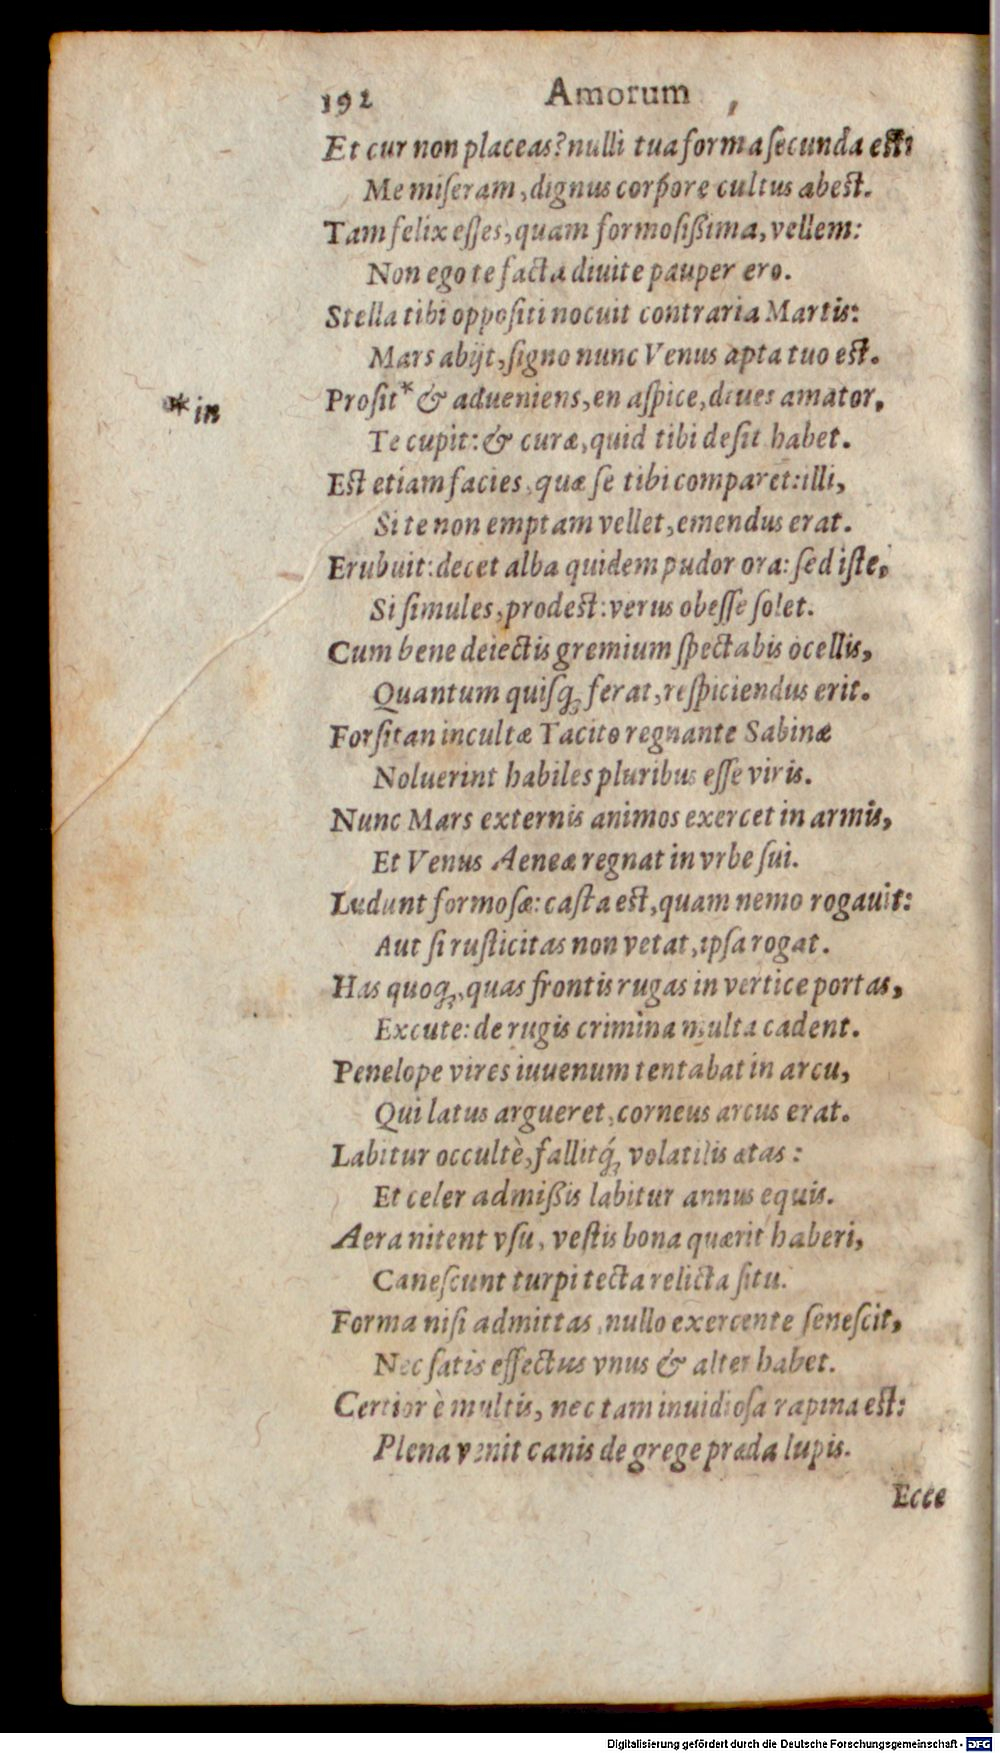 192 Amorum
Et cur non placeas? nulli tua forma ſecunda eſt:
Me miſeram, dignus corpore cultus abest.
Tam felix eſſes, quam formoſiſſima, vellem:
Non ego te facta diuite pauper ero.
Stella tibi oppoſiti nocuit contraria Martis:
Mars abijt, ſigno nunc Venus apta tuo est.
*in
Proſit* & adueniens, en aſpice, diues amator,
Te cupit: & curæ, quid tibi deſit habet.
Est etiam facies, quæ ſe tibi comparet: illi,
Si te non emptam vellet, emendus erat.
Erubuit: decet alba quidem pudor ora: ſed iſte,
Si ſimules, prodest: verus obeſſe ſolet.
Cum bene deiectis gremium ſpectabis ocellis,
Quantum quiſq; ferat, reſpiciendus erit.
Forſitan incultæ Tacito regnante Sabinæ
Noluerint habiles pluribus eſſe viris.
Nunc Mars externis animos exercet in armis,
Et Venus Aeneæ regnat in vrbe ſui.
Ludunt formoſæ: caſta est, quam nemo rogauit:
Aut ſi ruſticitas non vetat, ipſa rogat.
Has quoq;, quas frontis rugas in vertice portas,
Excute: de rugis crimina multa cadent.
Penelope vires iuuenum tentabat in arcu,
Qui latus argueret, corneus arcus erat.
Labitur occultè, fallitq́; volatilis ætas:
Et celer admiſſis labitur annus equis.
Aera nitent vſu, veſtis bona quærit haberi,
Caneſcunt turpi tecta relicta ſitu.
Forma niſi admittas, nullo exercente ſeneſcit,
Nec ſatis effectus vnus & alter habet.
Certior è multis, nec tam inuidioſa rapina est:
Plena venit canis de grege præda lupis.
Ecce
Digitalisierung gefördert durch die Deutsche Forschungsgemeinschaft - DFG